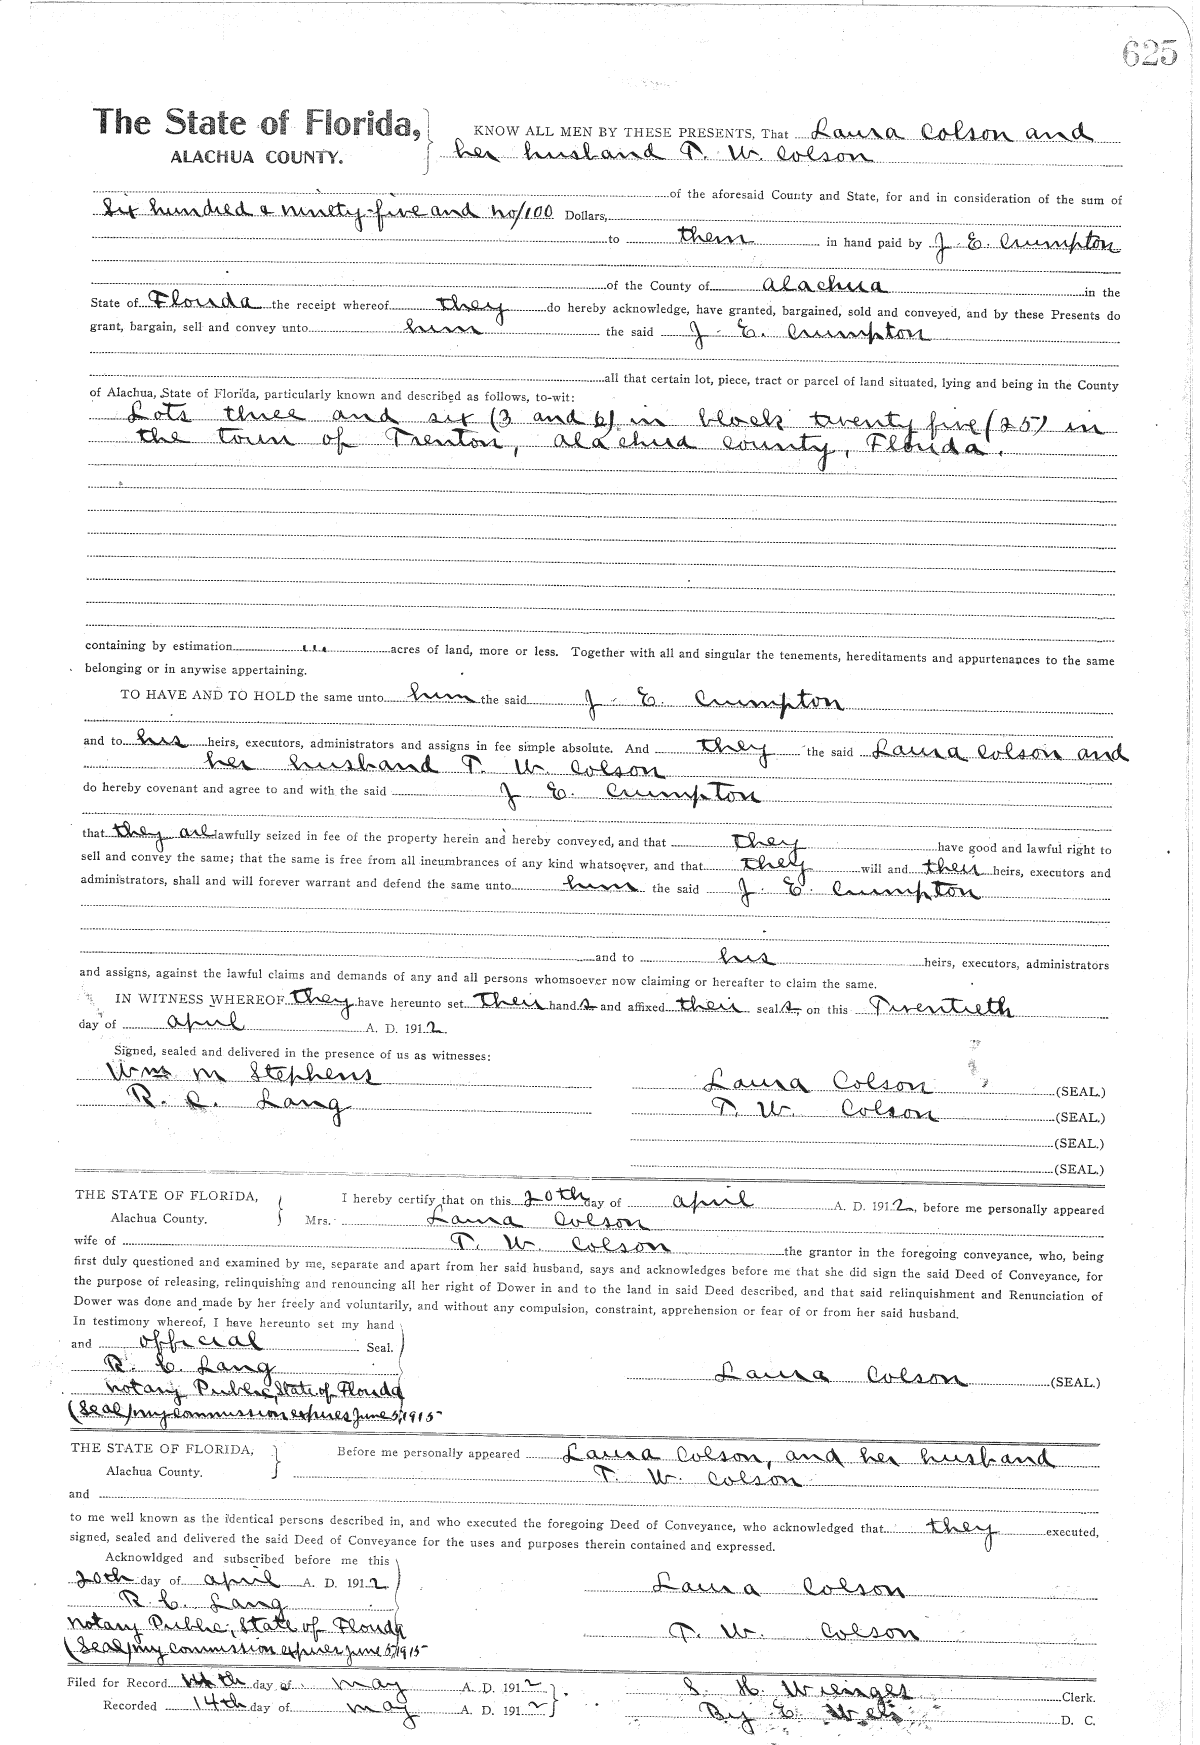 625
The State of Florida,
ALACHUA COUNTY.
KNOW ALL MEN BY THESE PRESENTS, That Laura Colson and
her husband T. W. Colson
of the aforesaid County and State, for and in consideration of the sum of
Six hundred & ninety-five and no/100 Dollars,
to them in hand paid by J. E. Crumpton
of the County of Alachua in the
State of Florida the receipt whereof they do hereby acknowledge, have granted, bargained, sold and conveyed, and by these Presents do
grant, bargain, sell and convey unto him the said J. E. Crumpton
all that certain lot, piece, tract or parcel of land situated, lying and being in the County
of Alachua, State of Florida, particularly known and described as follows, to-wit:
Lots three and six (3 and 6) in block twenty five (25) in
the town of Trenton, Alachua County, Florida.
containing by estimation acres of land, more or less. Together with all and singular the tenements, hereditaments and appurtenances to the same
belonging or in anywise appertaining.
TO HAVE AND TO HOLD the same unto him the said J. E. Crumpton
and to his heirs, executors, administrators and assigns in fee simple absolute. And they the said Laura Colson and
her husband T. W. Colson
do hereby covenant and agree to and with the said J E. Crumpton
that they are lawfully seized in fee of the property herein and hereby conveyed, and that they have good and lawful right to
sell and convey the same; that the same is free from all incumbrances of any kind whatsoever, and that they will and their heirs, executors and
administrators, shall and will forever warrant and defend the same unto him the said J. E. Crumpton
and to his heirs, executors, administrators
and assigns, against the lawful claims and demands of any and all persons whomsoever now claiming or hereafter to claim the same.
IN WITNESS WHEREOF they have hereunto set their hands and affixed their seals on this Twentieth
day of April A. D. 1912.
Signed, sealed and delivered in the presence of us as witnesses:
Wm M Stephens
R. C. Lang
Laura Colson (SEAL.)
T. W. Colson (SEAL.)
(SEAL.)
(SEAL.)
THE STATE OF FLORIDA,
Alachua County.
I hereby certify that on this 20th day of April A. D. 1912, before me personally appeared
Mrs. Laura Colson
wife of T. W. Colson the grantor in the foregoing conveyance, who, being
first duly questioned and examined by me, separate and apart from her said husband, says and acknowledges before me that she did sign the said Deed of Conveyance, for
the purpose of releasing, relinquishing and renouncing all her right of Dower in and to the land in said Deed described, and that said relinquishment and Renunciation of
Dower was done and made by her freely and voluntarily, and without any compulsion, constraint, apprehension or fear of or from her said husband.
In testimony whereof, I have hereunto set my hand
and official Seal.
R. C. Lang
Notary Public, State of Florida
(Seal) my commission expires June 5, 1915
Laura Colson (SEAL.)
THE STATE OF FLORIDA,
Alachua County.
Before me personally appeared Laura Colson, and her husband
T. W. Colson
and
to me well known as the identical persons described in, and who executed the foregoing Deed of Conveyance, who acknowledged that they executed,
signed, sealed and delivered the said Deed of Conveyance for the uses and purposes therein contained and expressed.
Acknowldged and subscribed before me this
20th day of April A. D. 1912
R. C. Lang
Notary Public, State of Florida
(Seal) my commission expires June 5, 1915
Laura Colson
T. W. Colson
Filed for Record 14th day of May A. D. 1912
Recorded 14th day of May A. D. 1912
S. H. Wienges Clerk.
By E D. C.